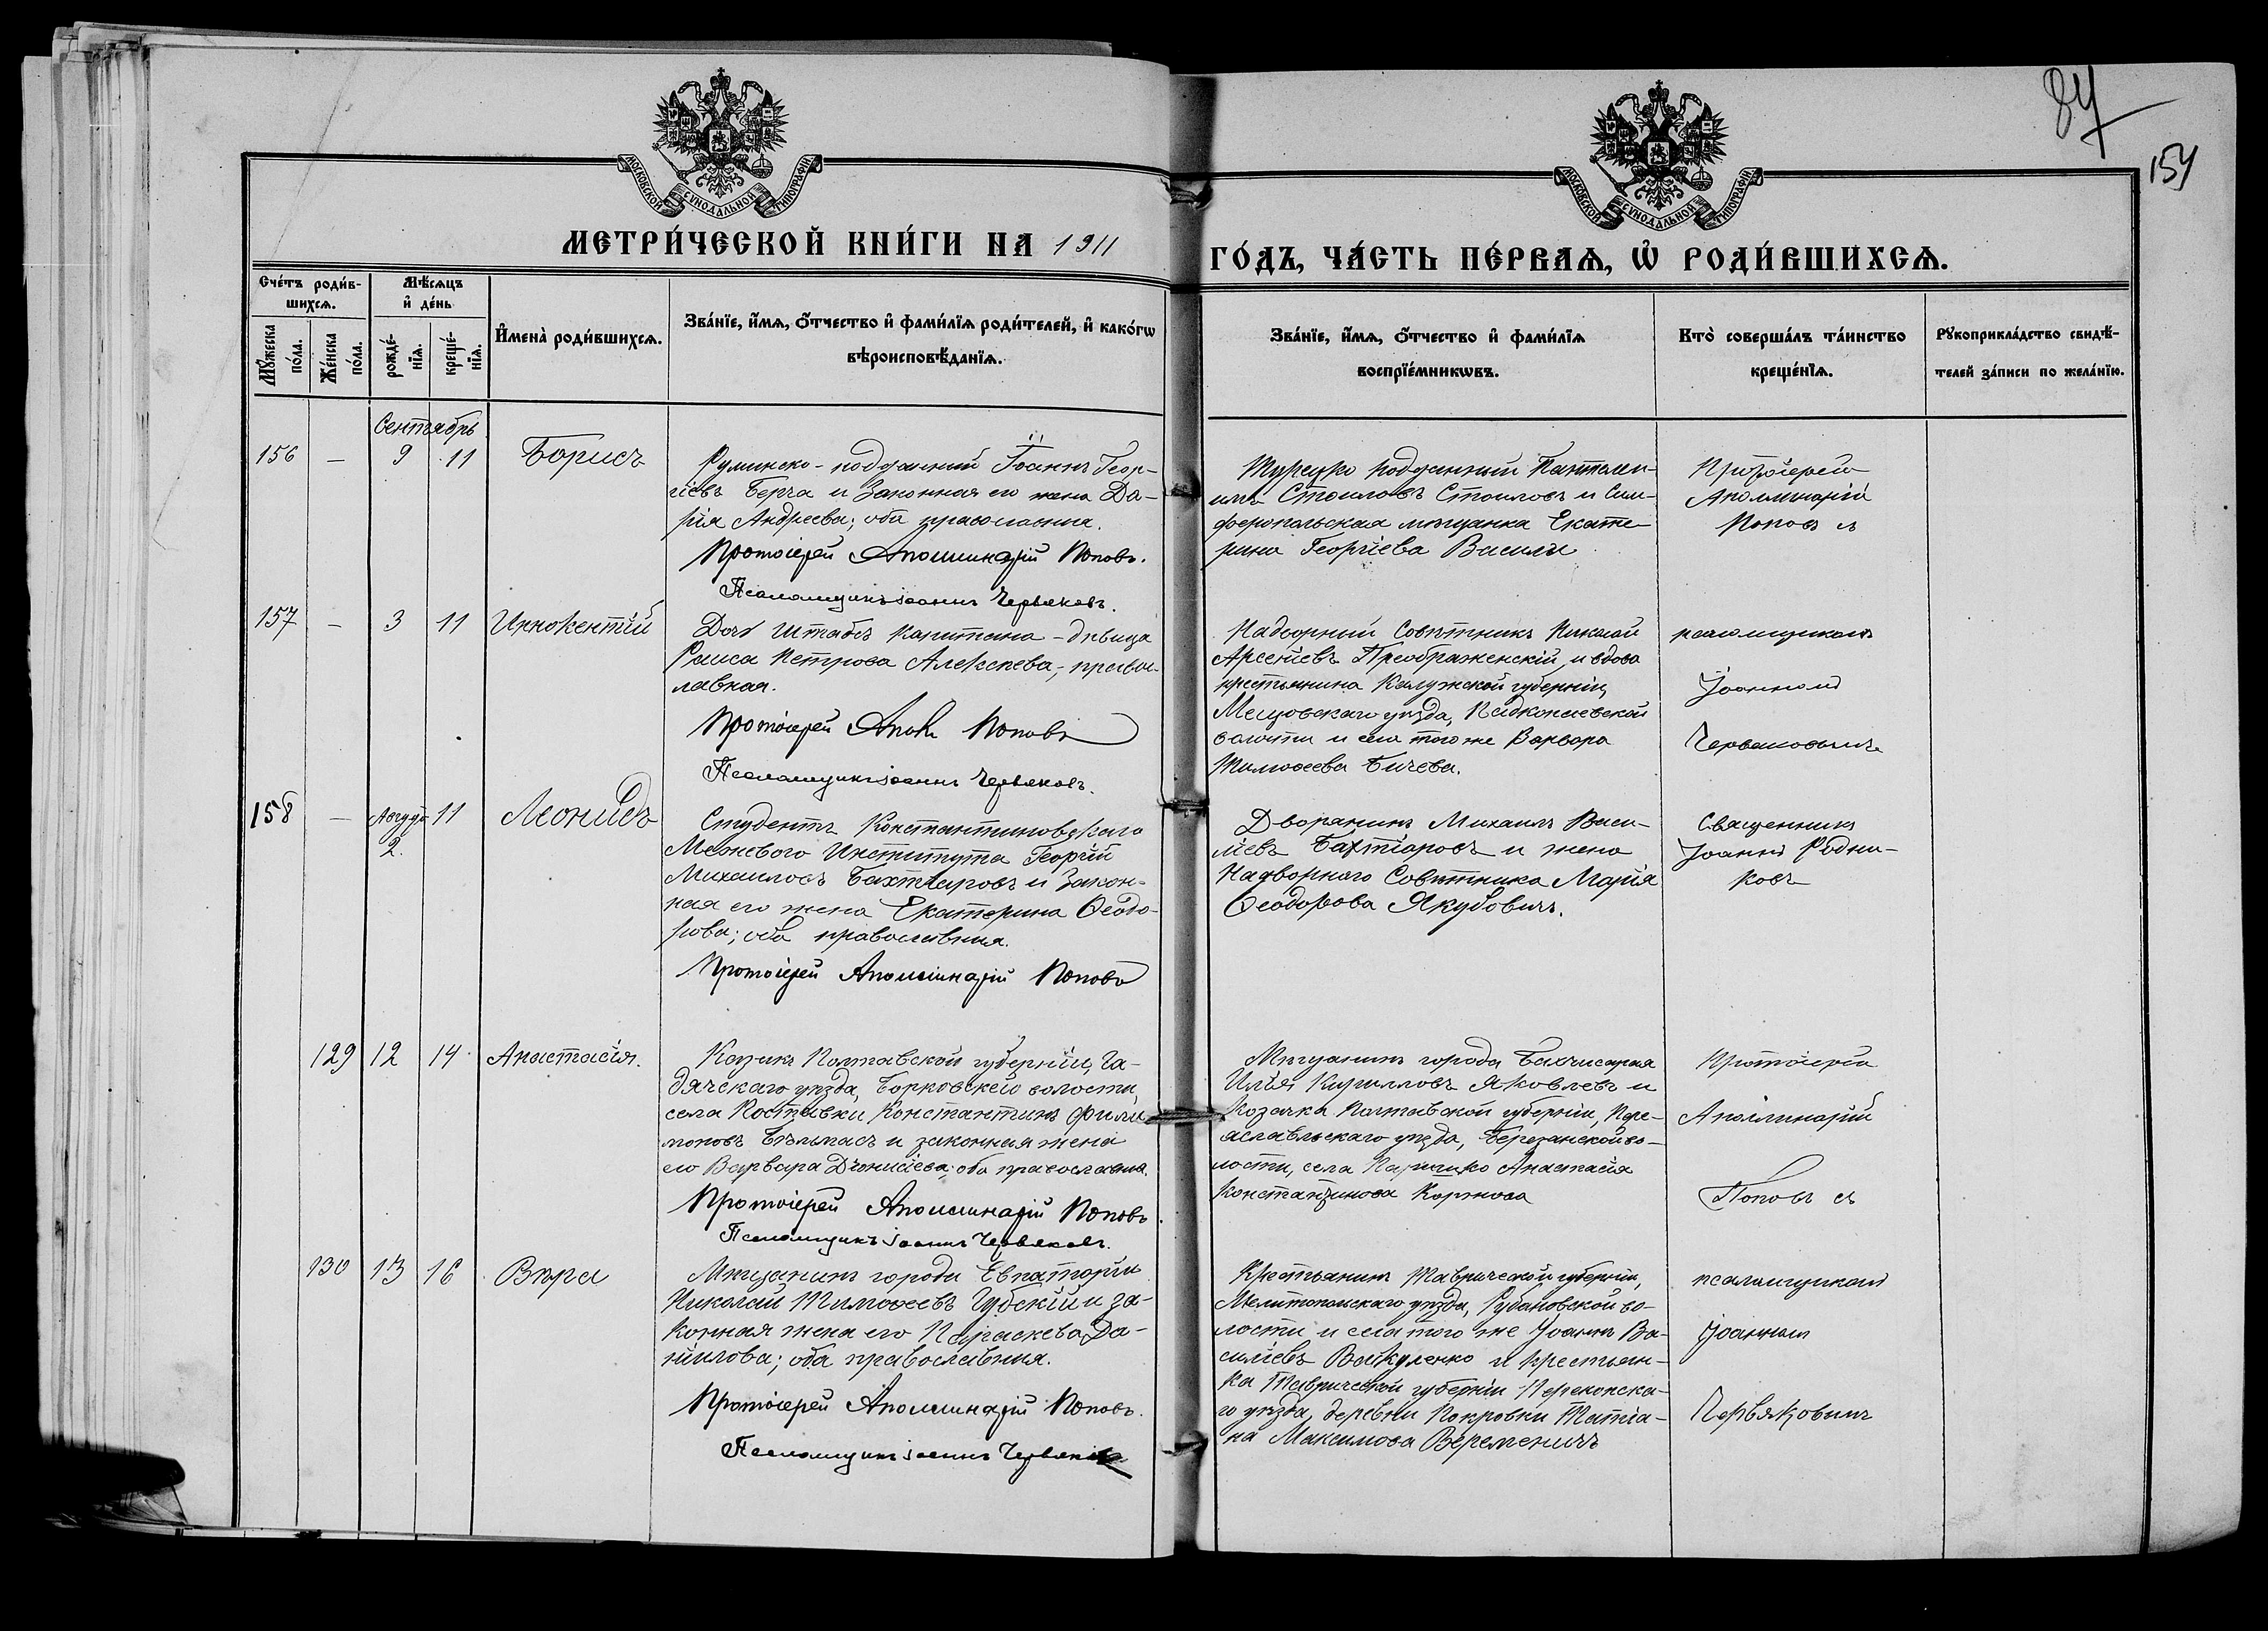 84
154
МОСКОВСКОЙ СѴНОДАЛЬНОЙ ТИПОГРАФІИ
МОСКОВСКОЙ СѴНОДАЛЬНОЙ ТИПОГРАФІИ
МЕТРИ́ЧЕСКОЙ КНИ́ГИ НА 1911
ГО́ДЪ, ЧА́СТЬ ПЕ́РВАЯ, Ѡ҆ РОДИ́ВШИХСЯ.
Сче́тъ роди́в-
шихся.
Мꙋ́жеска
по́ла.
Же́нска
по́ла.
Мѣ́сяцъ
и҆ де́нь
рожде́-
нїя.
креще́-
нїя.
И҆мена̀ роди́вшихся.
Зва́нїе, и҆́мя, о҆́тчество и҆ фами́лїя роди́телей, и҆ како́гѡ
вѣроисповѣ́данїя.
Зва́нїе, и҆́мя, о҆́тчество и҆ фами́лїя
воспрїе́мникѡвъ.
Кто̀ соверша́лъ та́инство
креще́нїя.
Рꙋкоприкла́дство свидѣ́-
телей за́писи по жела́нїю.
Сентябрь
156 — 9 11 Борисъ
Румынско-подданный Іоаннъ Геор-
гіевъ Берча и законная его жена Да-
рія Андреева; оба православные.
Протоіерей Аполлинарій Поповъ.
Псаломщикъ Іоаннъ Червяковъ.
Турецко подданный Пантелеи-
монъ Стоиловъ Стоиловъ и Сим-
феропольская мѣщанка Екате-
рина Георгіева Василь
Протоіерей
Аполлинарій
Поповъ съ
157 — 3 11 Иннокентій
Дочь Штабсъ Капитана - дѣвица
Раиса Петрова Алексеева, - правос-
лавная.
Протоіерей Апол. Поповъ
Псаломщикъ Іоаннъ Червяковъ.
Надворный Совѣтникъ Николай
Арсеніевъ Преображенскій, и вдова
крестьянина Калужской губерніи,
Мещовскаго уѣзда,
волости и села того же Варвара
Тимоѳеева Бичева.
псаломщикомъ
Іоанномъ
Червяковымъ
158 — Августъ 2. 11 Леонидъ
Студентъ Константиновскаго
Межевого Института Георгій
Михаиловъ Бахтіаровъ и закон-
ная его жена Екатерина Ѳеодо-
рова; оба православные.
Протоіерей Аполлинарій Поповъ
Дворянинъ Михаилъ Васи-
ліевъ Бахтіаровъ и жена
Надворного Совѣтника Марія
Ѳеодорова Якубовичъ.
Священникъ
Іоаннъ Родни-
ковъ
129 12 14 Анастасія.
Козакъ Полтавской губерніи, Га-
дячскаго уѣзда, Борковской волости,
села Костянки Константинъ Фили-
моновъ и законная жена
его Варвара Діонисіева; оба православные.
Протоіерей Аполлинарій Поповъ.
Псаломщикъ Іоаннъ Червяковъ.
Мѣщанинъ города Бахчисарая
Илья Кирилловъ Яковлевъ и
Козачка Полтавской губерніи, Пере-
яславльскаго уѣзда, Березанской во-
лости, села Анастасія
Константинова Коржова
Протоіерей
Аполлинарій
Поповъ съ
130 13 16 Вѣра
Мѣщанинъ города Евпаторіи
Николай Тимоѳеевъ Губскій и за-
конная жена его Параскева Да-
ніилова; оба православные.
Протоіерей Аполлинарій Поповъ.
Псаломщикъ Іоаннъ Червяковъ
Крестьянинъ Таврической губерніи,
Мелитопольскаго уѣзда, Рубановской во-
лости и села того же Іоаннъ Ва-
силіевъ Вакуленко и крестьян-
ка Таврической губерніи Перекопска-
го уѣзда, деревни Покровки Татіа-
на Максимова Веременичъ
псаломщикомъ
Іоанномъ
Червяковымъ